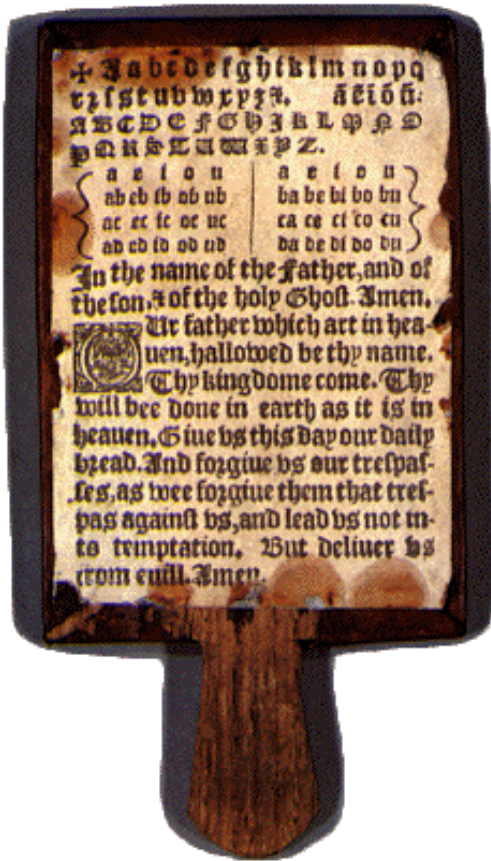 ✠ A a b c d e f g h i k l m n o p q
r ꝛ ſ s t u v w x y z ⁊. ã ẽ ĩ õ ũ:
A B C D E F G H I K L M N O
P Q R S T U W X Y Z.
a e i o u a e i o u
ab eb ib ob ub ba be bi bo bu
ac ec ic oc uc ca ce ci co cu
ad ed id od ud da de di do du
In the name of the Father, and of
the ſon, ⁊ of the holy Ghoſt. Amen.
OUr father which art in hea-
uen, hallowed be thy name.
Thy kingdome come. Thy
will bee done in earth as it is in
heauen. Giue vs this day our daily
bꝛead. And foꝛgiue vs our treſpaſ-
ſes, as wee foꝛgiue them that treſ-
pas againſt vs, and lead vs not in-
to temptation. But deliuer vs
from euill. Amen.